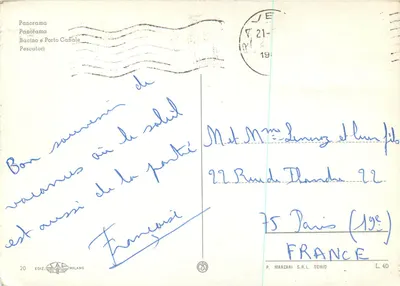 Panorama
Panorama
Bacino e Porto Canale
Pescatori
VE
21-
19
Bon souvenir de
vacances où le soleil
est aussi de la partie
Françoise
M et Mme et leurs fils
22 Rue de Flandre 22
75 Paris (19e)
FRANCE
20
MILANO
A. MARZARI S.R.L.
L. 40